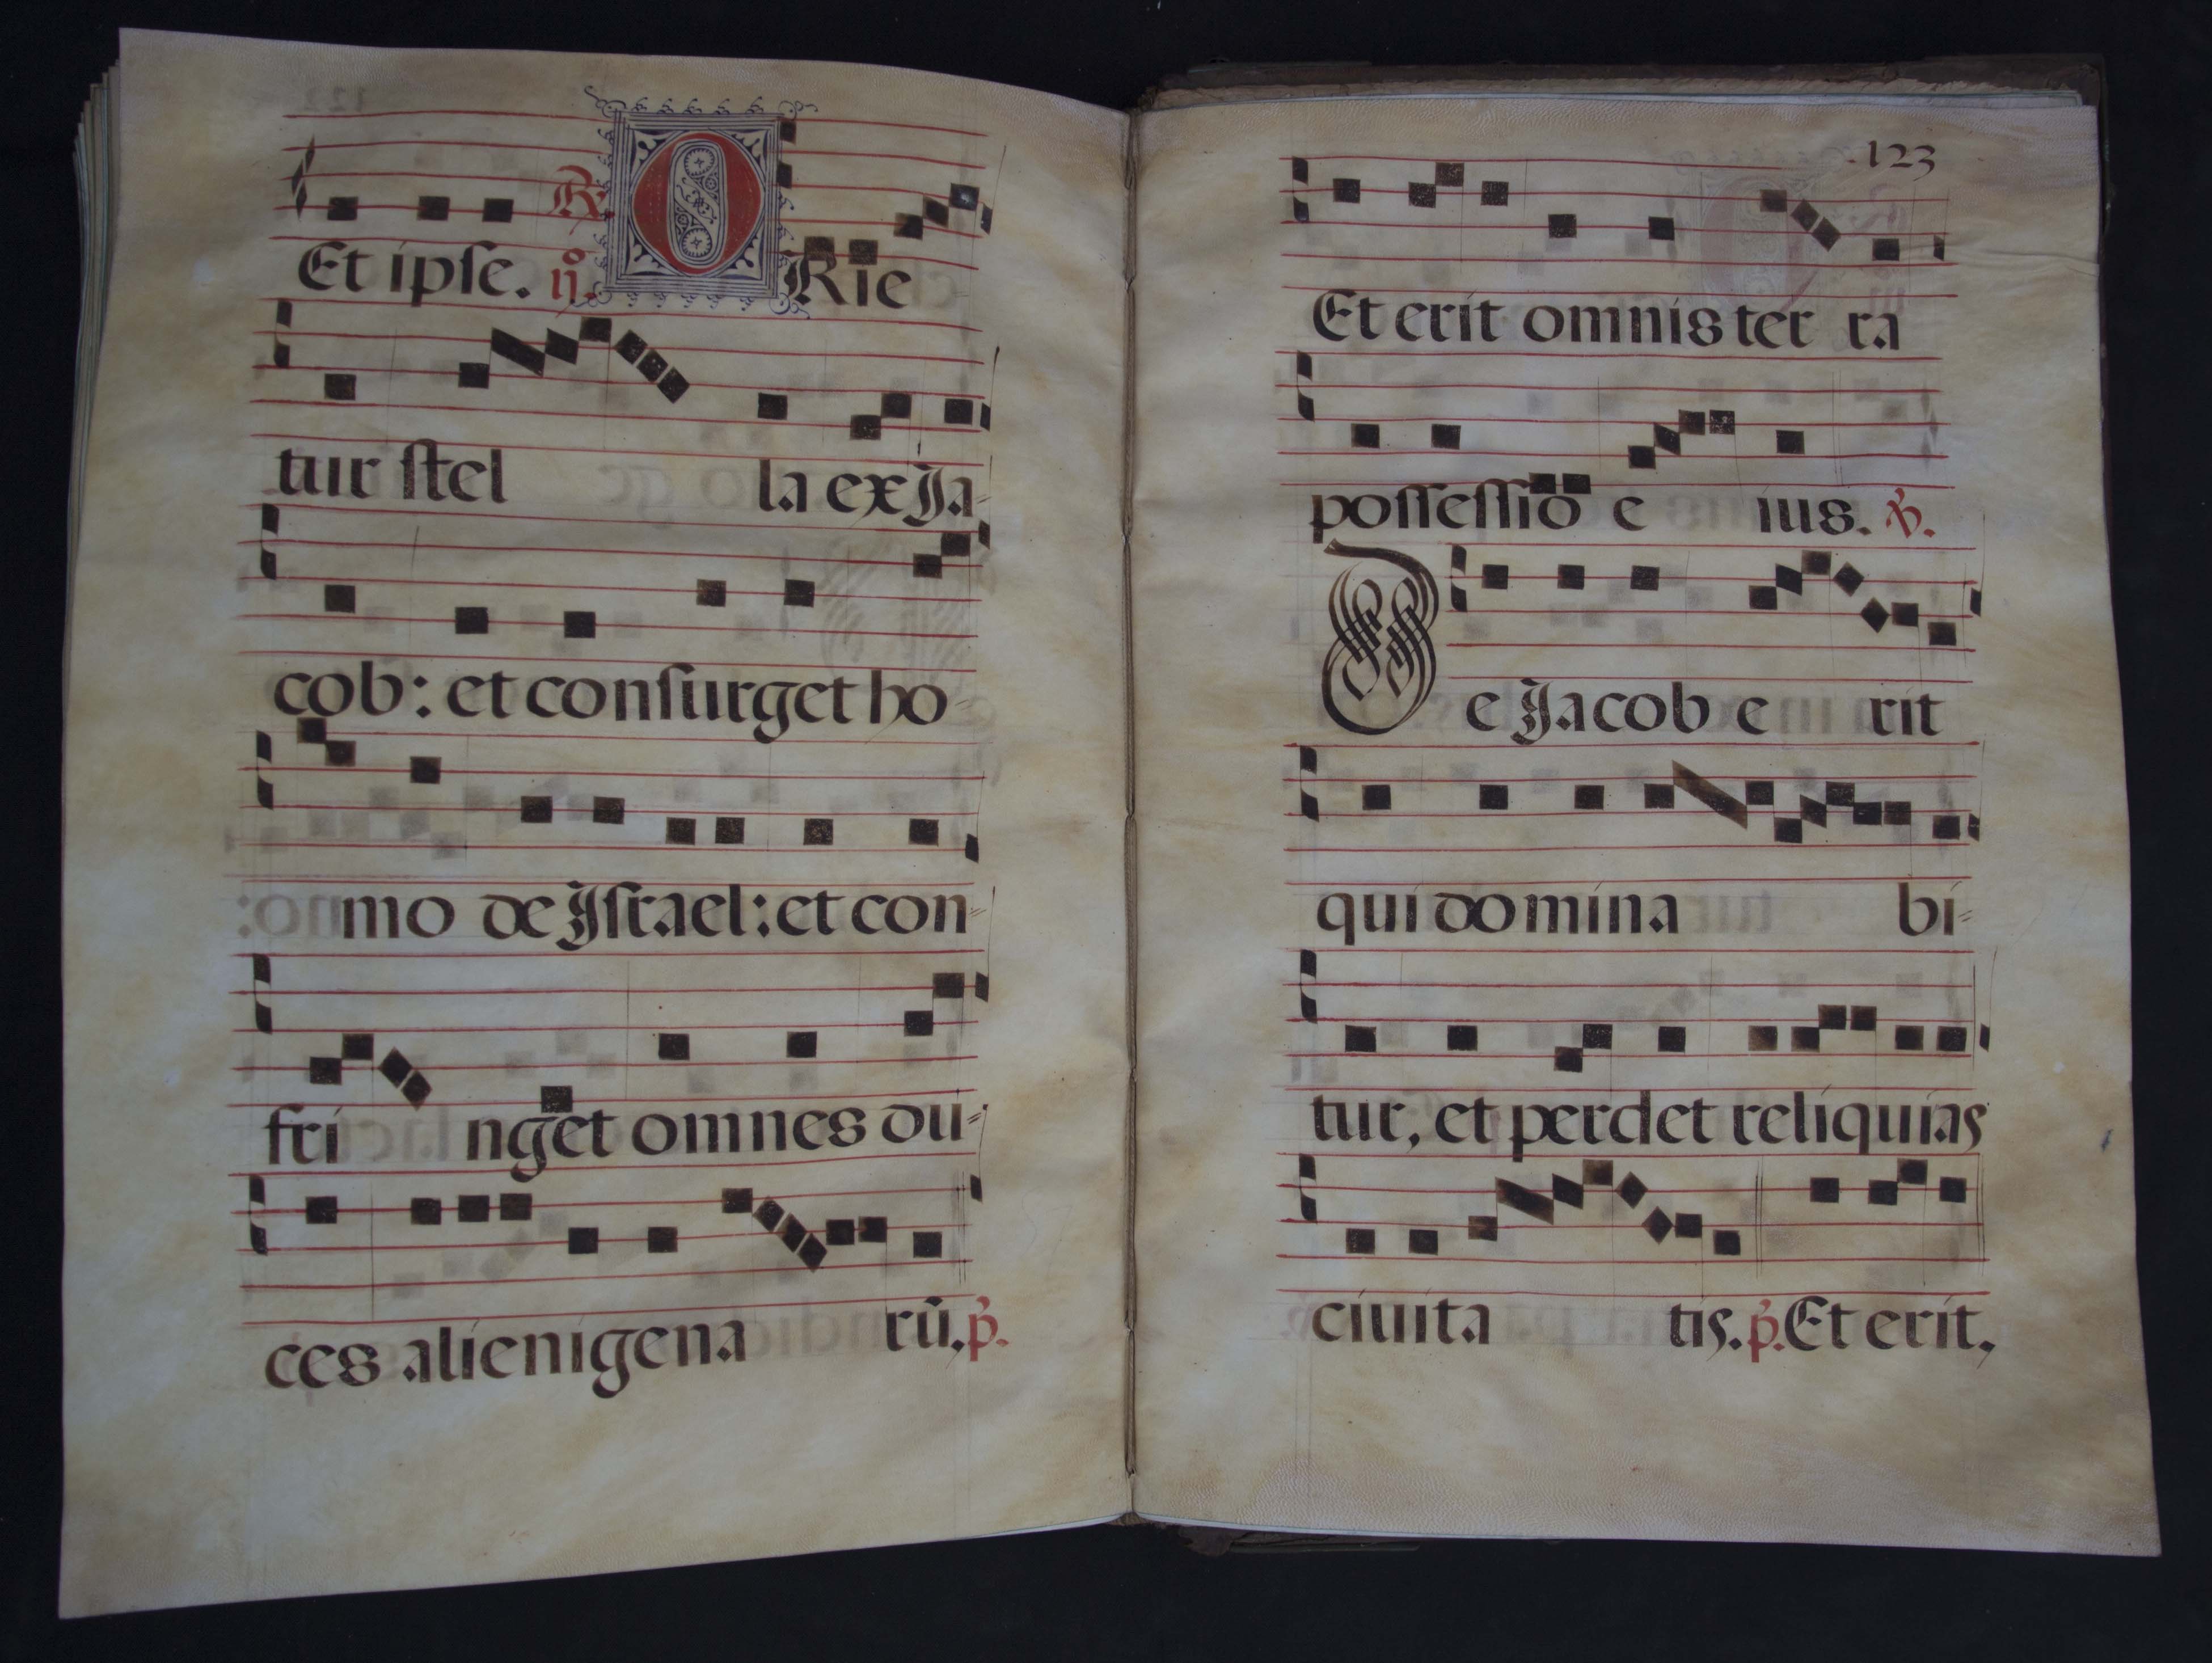 Et ipse. ij.º ℟. ORie
tur stel la ex Ja-
cob: et consurget ho-
mo de Israel: et con-
fri nget omnes du-
ces alienigena rū. p̄.
123
Et erit omnis ter ra
possessio e ius. ℣.
De Jacob e rit
qui domina bi-
tur, et perdet reliquias
ciuita tis. p̄. Et erit.